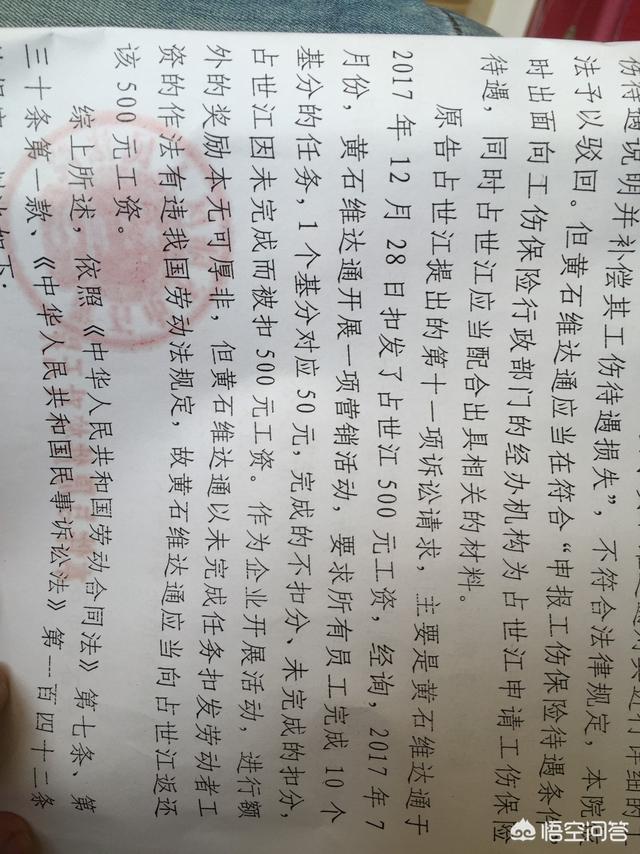 伤待遇说明并补偿其工伤待遇损失”，不符合法律规定，本院
法予以驳回。但黄石维达通应当在符合“申报工伤保险待遇条件
时出面向工伤保险行政部门的经办机构为占世江申请工伤保险
待遇，同时占世江应当配合出具相关的材料。
原告占世江提出的第十一项诉讼请求，主要是黄石维达通于
2017 年 12 月 28 日扣发了占世江 500 元工资，经询，2017 年 7
月份，黄石维达通开展一项营销活动，要求所有员工完成 10 个
基分的任务，1 个基分对应 50 元，完成的不扣分、未完成的扣分，
占世江因未完成而被扣 500 元工资。作为企业开展活动，进行额
外的奖励本无可厚非，但黄石维达通以未完成任务扣发劳动者工
资的作法有违我国劳动法规定，故黄石维达通应当向占世江返还
该 500 元工资。
综上所述，依照《中华人民共和国劳动合同法》第七条、第
三十条第一款、《中华人民共和国民事诉讼法》第一百四十二条
如下：
悟空问答